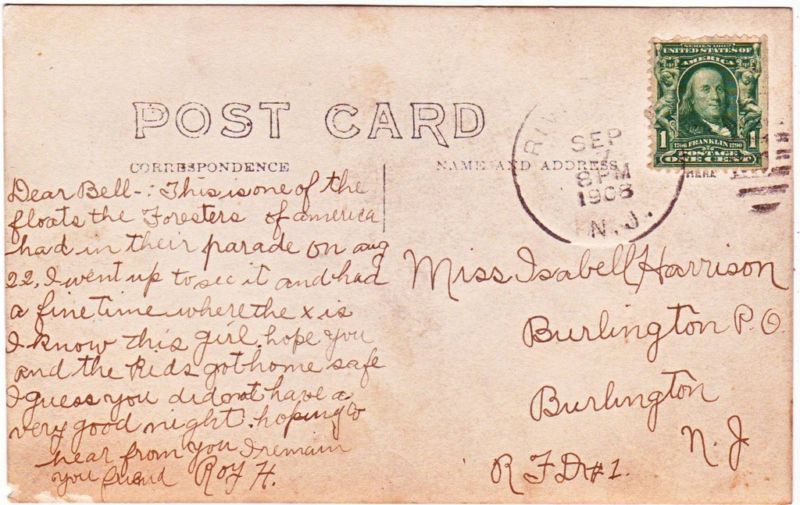 POST CARD
CORRESPONDENCE
NAME AND ADDRESS
SERIES 1902
UNITED STATES OF
AMERICA
1 1
1706 FRANKLIN 1790
POSTAGE
ONE CENT
HERE
RIV
SEP
8 PM
1908
N. J.
Dear Bell-: This is one of the
floats the Foresters of america
had in their parade on aug
22, I went up to see it and had
a fine time where the x is
I know this girl hope you
and the kids got home safe
I guess you did not have a
very good night. hoping to
hear from you I remain
you friend Roy H.
Miss Isabell Harrison
Burlington P.O.
Burlington
N. J
R F D #1.